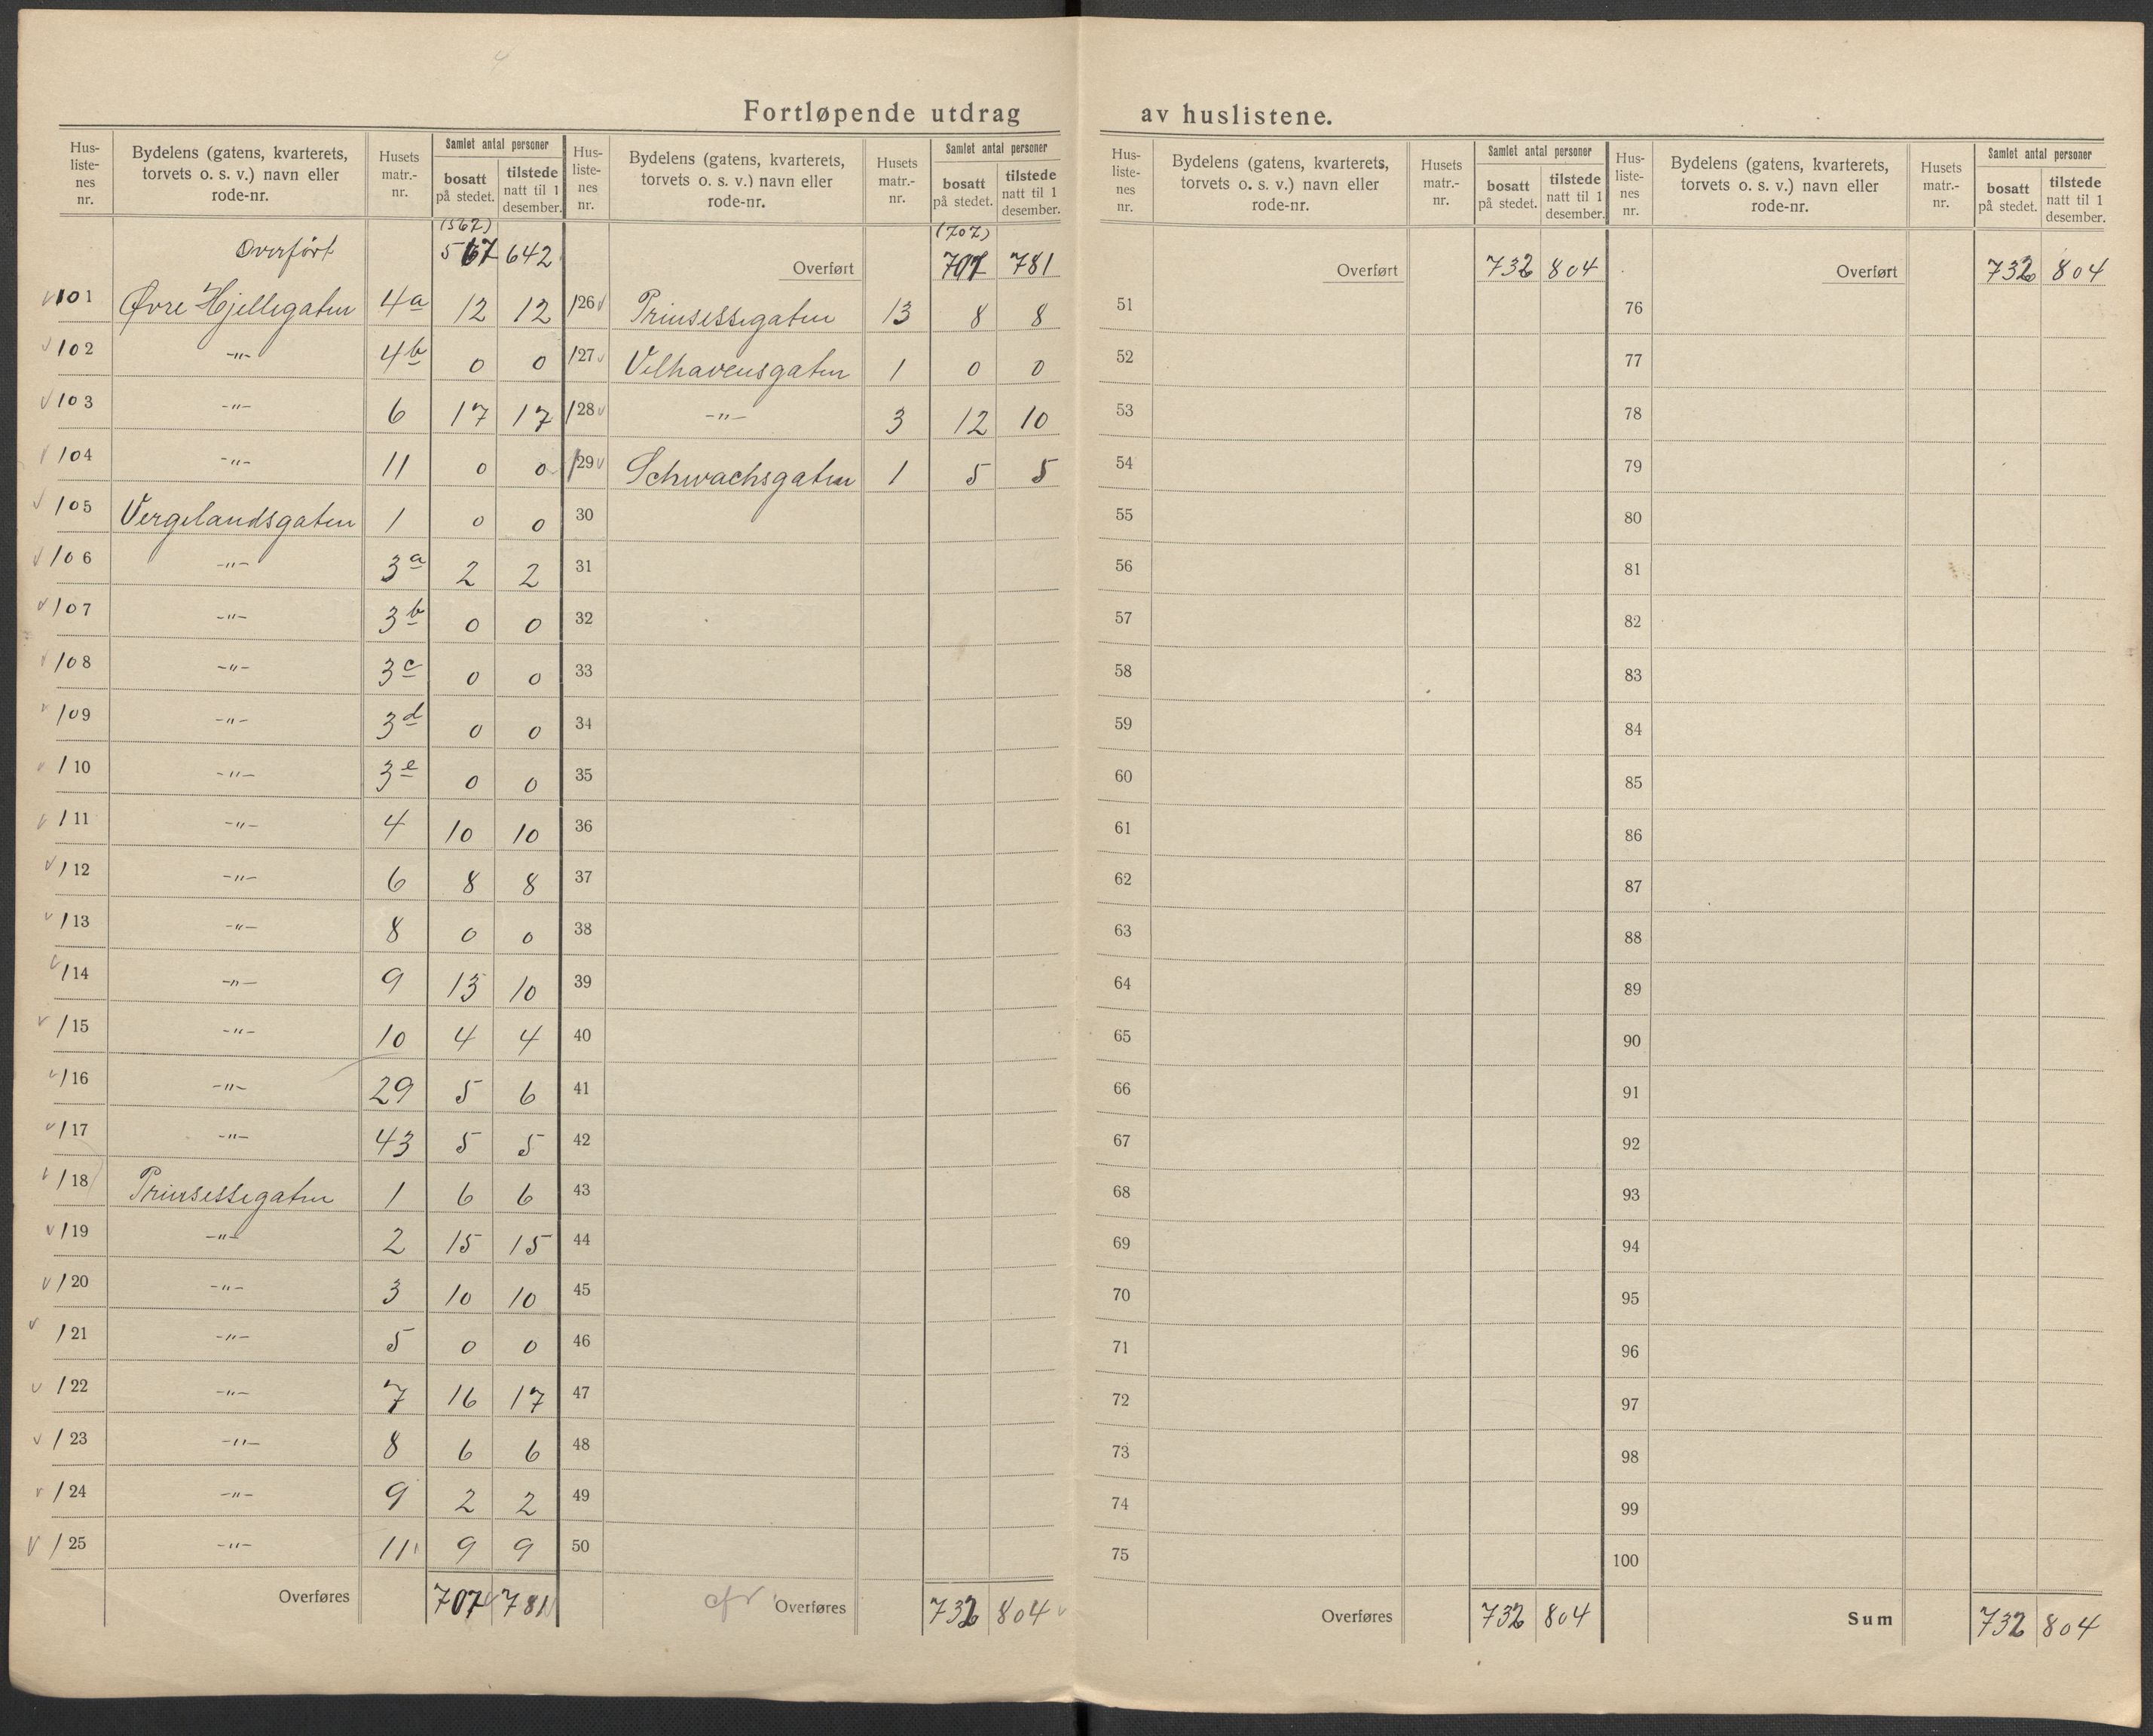 Fortløpende utdrag av huslistene.
Hus-listenes nr. | Bydelens (gatens, kvarterets, torvets o. s. v.) navn eller rode-nr. | Husets matr.-nr. | Samlet antal personer bosatt på stedet. | tilstede natt til 1 desember.
(567)
Overført 567 642
101 Øvre Hjellegaten 4a 12 12
102 -"- 4b 0 0
103 -"- 6 17 17
104 -"- 11 0 0
105 Vergelandsgaten 1 0 0
106 -"- 3a 2 2
107 -"- 3b 0 0
108 -"- 3c 0 0
109 -"- 3d 0 0
110 -"- 3e 0 0
111 -"- 4 10 10
112 -"- 6 8 8
113 -"- 8 0 0
114 -"- 9 13 10
115 -"- 10 4 4
116 -"- 29 5 6
117 -"- 43 5 5
118 Prinsessegaten 1 6 6
119 -"- 2 15 15
120 -"- 3 10 10
121 -"- 5 0 0
122 -"- 7 16 17
123 -"- 8 6 6
124 -"- 9 2 2
125 -"- 11 9 9
Overføres 707 781
Hus-listenes nr. | Bydelens (gatens, kvarterets, torvets o. s. v.) navn eller rode-nr. | Husets matr.-nr. | Samlet antal personer bosatt på stedet. | tilstede natt til 1 desember.
(707)
Overført 707 781
126 Prinsessegaten 13 8 8
127 Velhavensgaten 1 0 0
128 -"- 3 12 10
129 Schwachsgaten 1 5 5
30
31
32
33
34
35
36
37
38
39
40
41
42
43
44
45
46
47
48
49
50
Overføres 732 804
Hus-listenes nr. | Bydelens (gatens, kvarterets, torvets o. s. v.) navn eller rode-nr. | Husets matr.-nr. | Samlet antal personer bosatt på stedet. | tilstede natt til 1 desember.
Overført 732 804
51
52
53
54
55
56
57
58
59
60
61
62
63
64
65
66
67
68
69
70
71
72
73
74
75
Overføres 732 804
Hus-listenes nr. | Bydelens (gatens, kvarterets, torvets o. s. v.) navn eller rode-nr. | Husets matr.-nr. | Samlet antal personer bosatt på stedet. | tilstede natt til 1 desember.
Overført 732 804
76
77
78
79
80
81
82
83
84
85
86
87
88
89
90
91
92
93
94
95
96
97
98
99
100
Sum 732 804